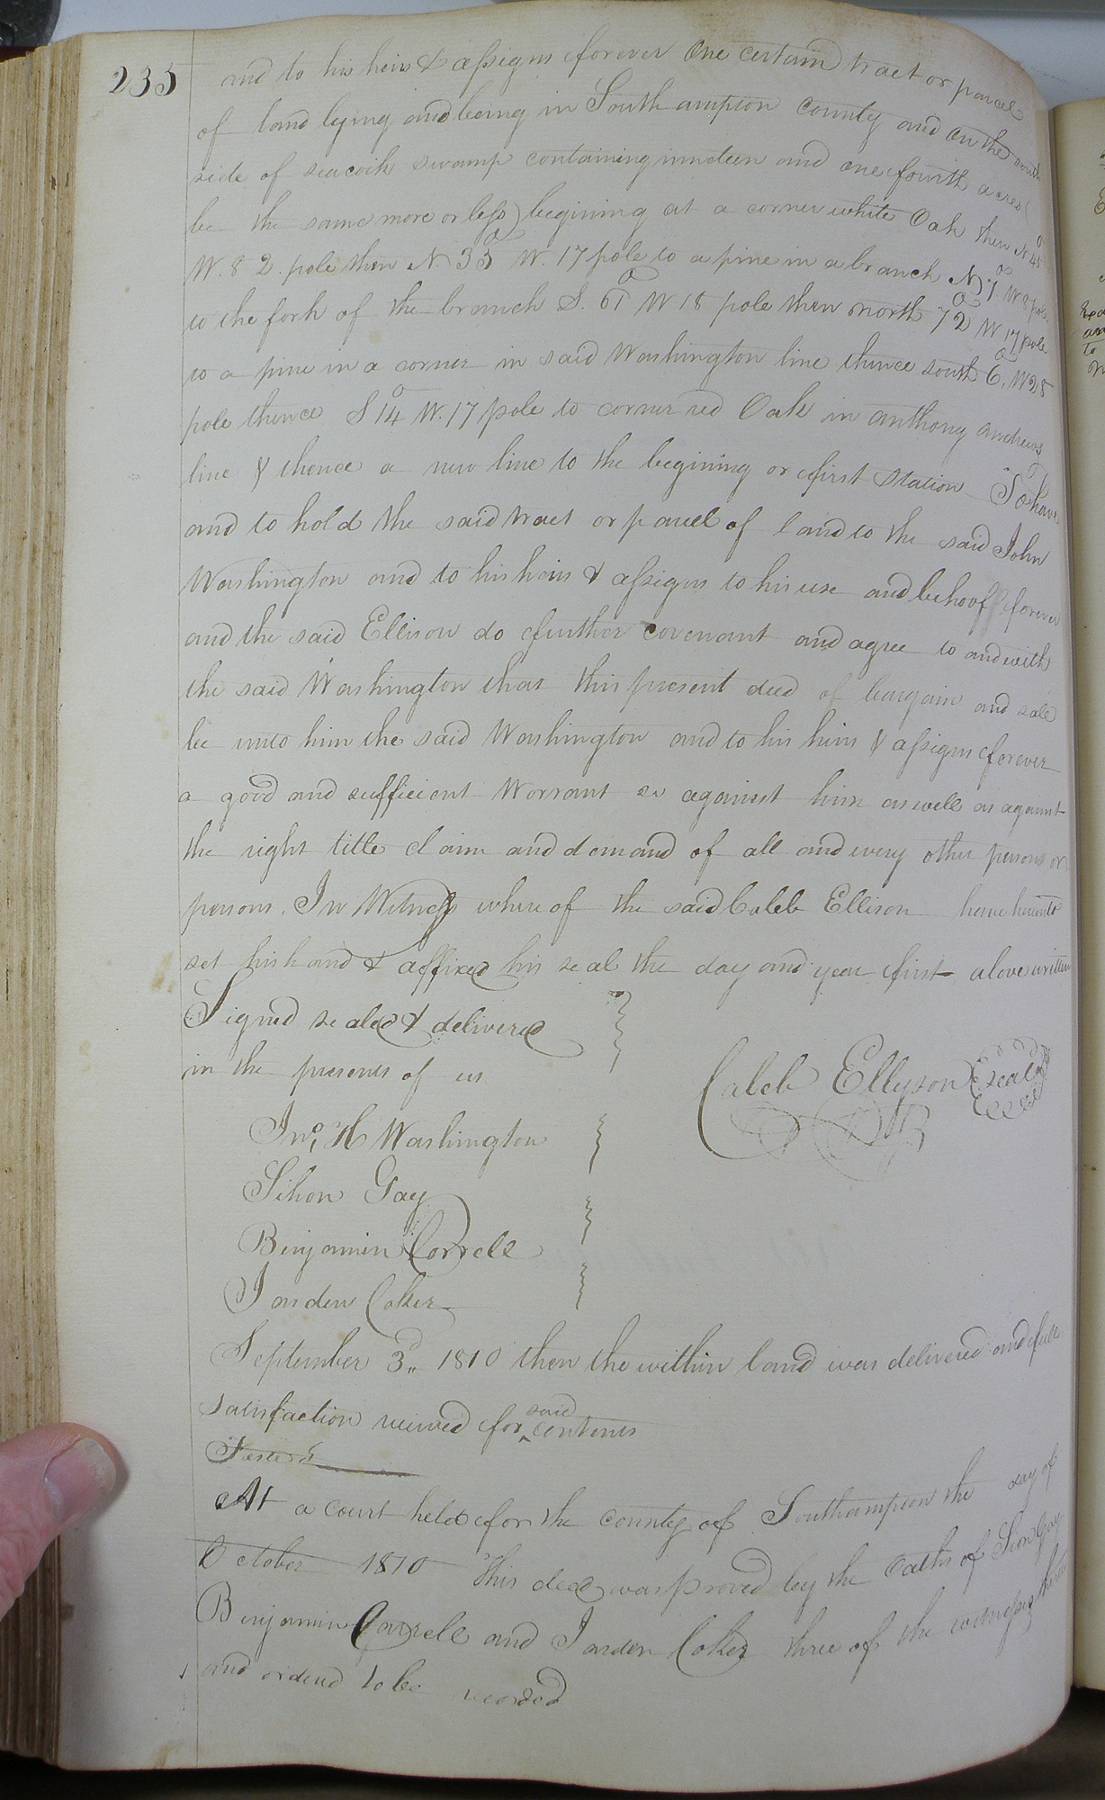 235
and to his heirs & assigns forever One certain tract or parcel
of land lying and being in Southampton County and on the south
side of seacock swamp containing ninteen and one fourth acres (
be the same more or less) begining at a corner white Oak then N 45°
W. 82 pole then N. 35° W. 17 pole to a pine in a branch N 1° W 8 pole
to the fork of the branch S. 61° W 18 pole then North 72° W 17 pole
to a pine in a corner in said Washington line thence south 6° W 28
pole thence S 14° W. 17 pole to corner red Oak in anthony andrews
line & thence a new line to the begining or first station To have
and to hold the said tract or parcel of land to the said John
Washington and to his heirs & assigns to his use and behoof forever
and the said Ellison do further covenant and agree to and with
the said Washington that this present deed of bargain and sale
be unto him the said Washington and to his heirs & assigns forever
a good and sufficient Warrant as against him as well as against
the right title claim and demand of all and every other person or
persons. In Witness where of the said Caleb Ellison have hereunto
set his hand & affixed his seal the day and year first above written
Signed sealed & delivered
in the presents of us
Caleb Ellyson seal
Jno. H Washington
Sihon Gay
Benjamin Correll
Jorden Coker
September 3d 1810 then the within land was delivered and full
satisfaction received for said contents
Teste
At a court held for the county of Southampton the day of
October 1810 This deed was proved by the Oaths of Sion Gay
Benjamin Correll and Jorden Coker three of the witnesses thereto
and orderd to be recorded